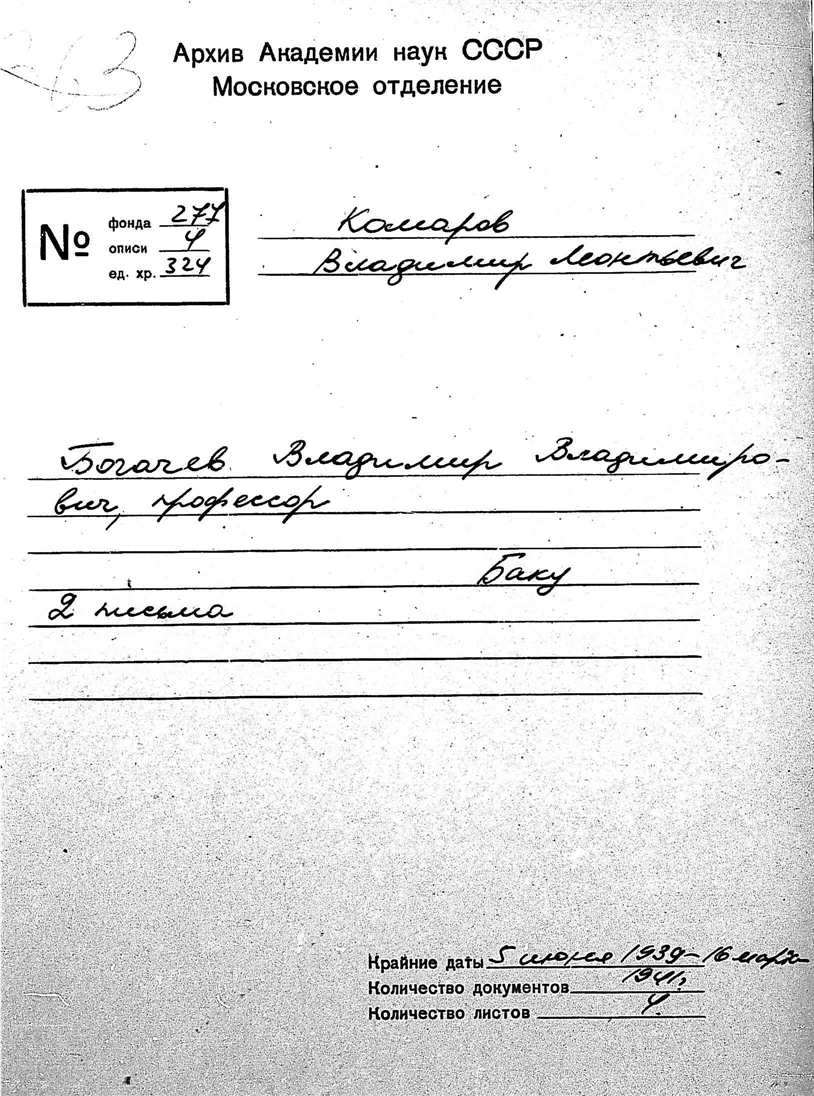 263
Архив Академии наук СССР
Московское отделение
№
фонда 277
описи 4
ед. хр. 324
Комаров
Владимир Леонтьевич
Богачев Владимир Владимиро-
вич, профессор
Баку
2 письма
Крайние даты 5 июня 1939 – 16 марта
1941 г.
Количество документов
Количество листов 4.